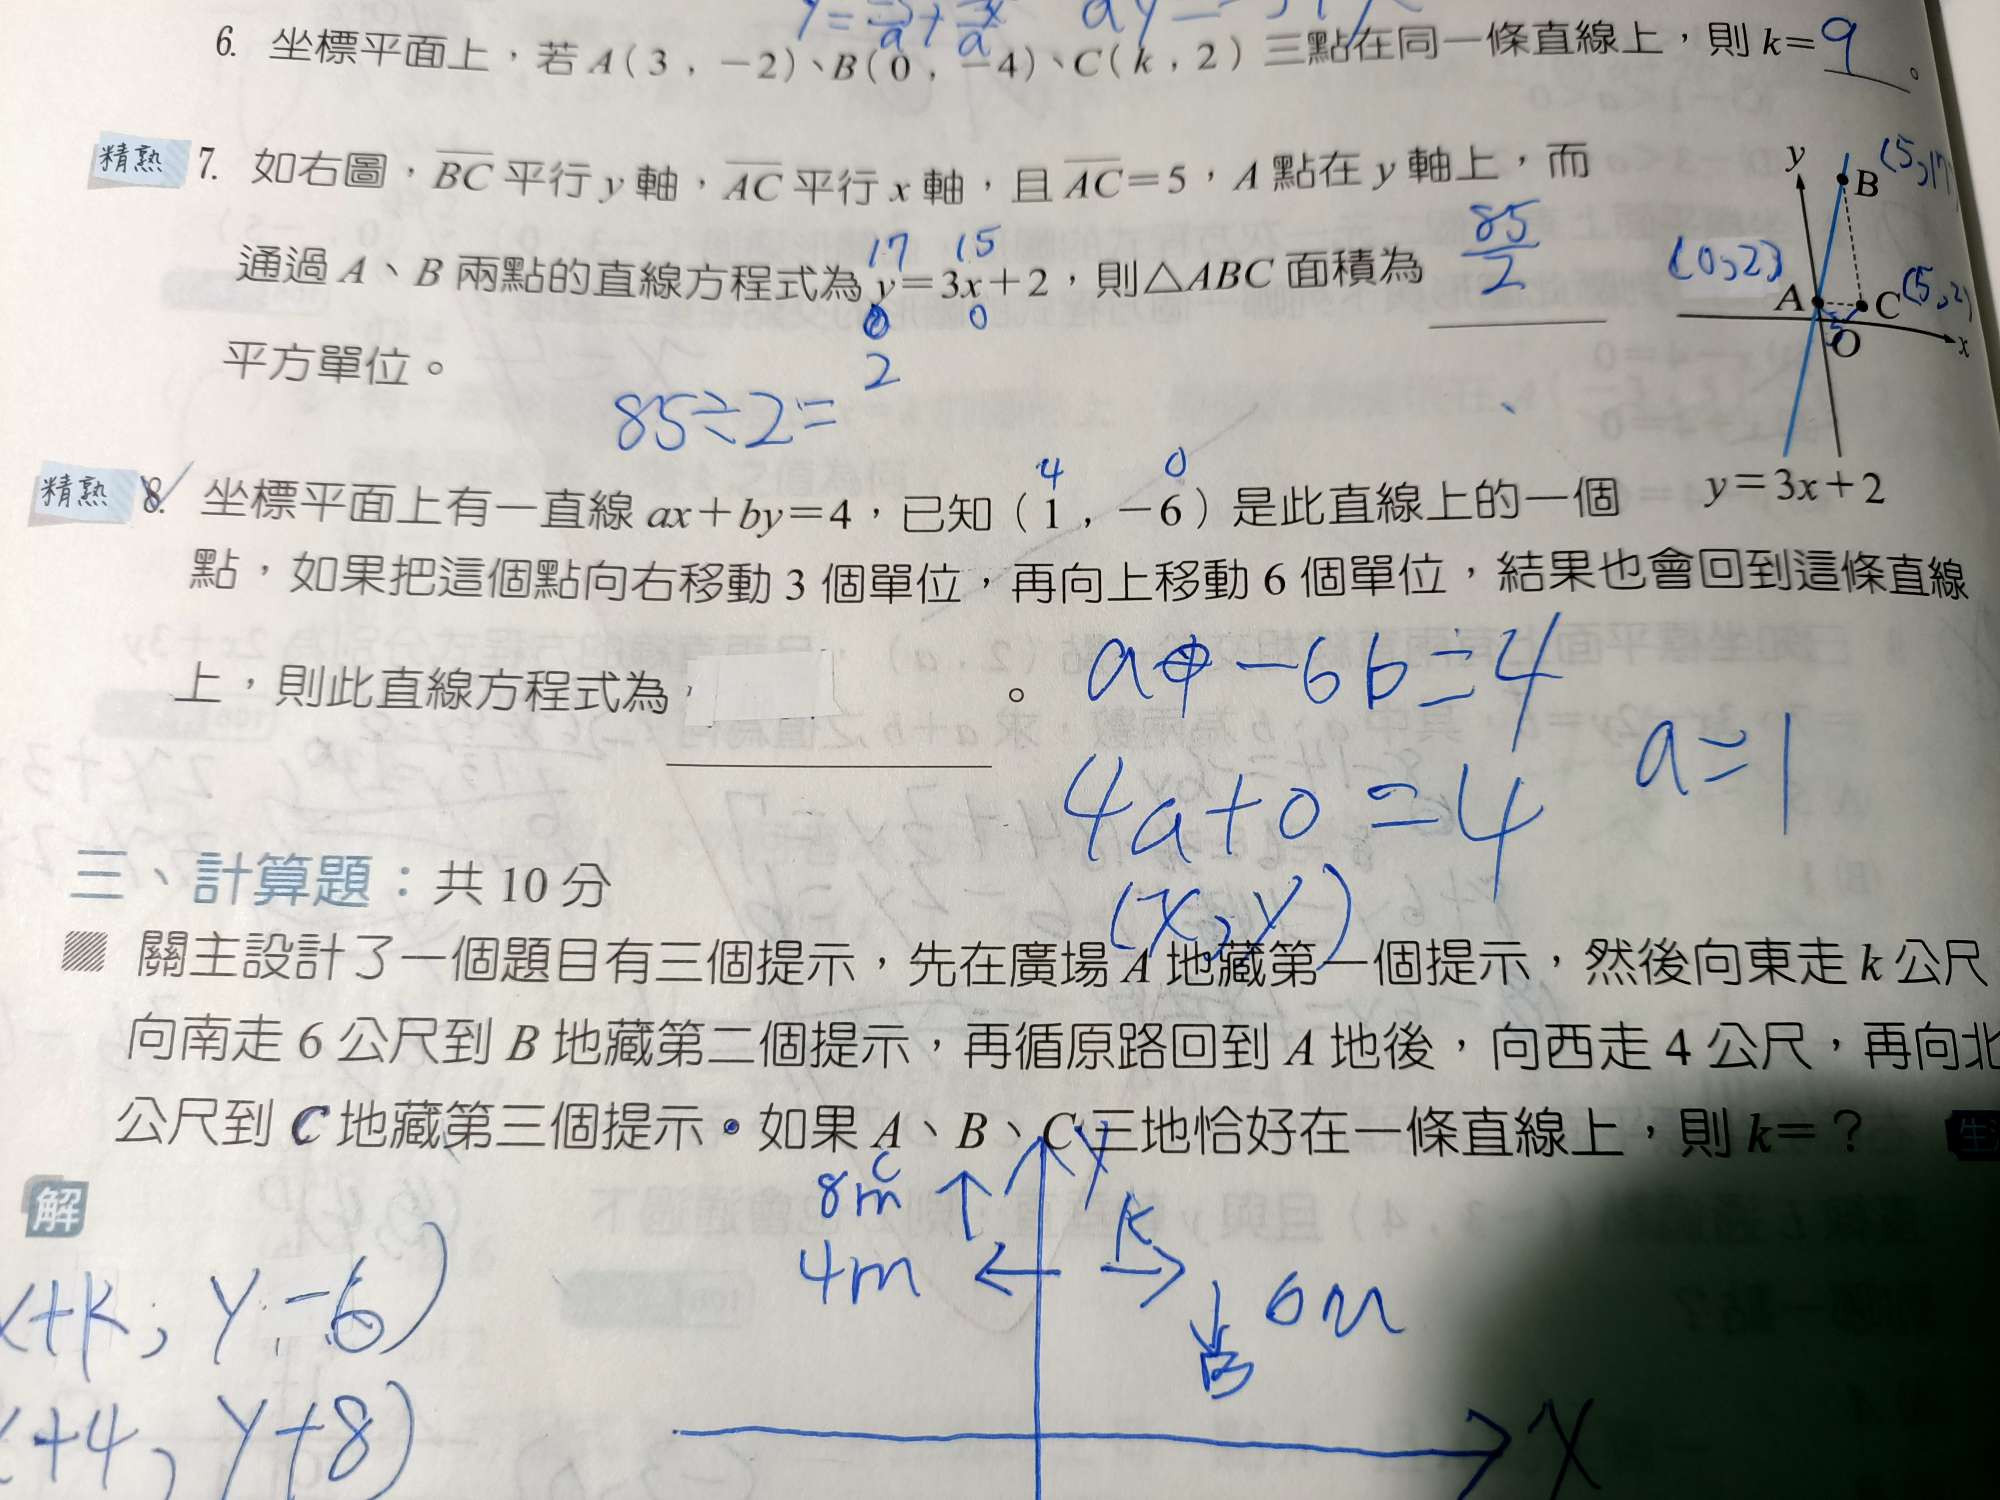 6. 坐標平面上，若 A（3，－2）、B（0，－4）、C（k，2）三點在同一條直線上，則 k＝9。
精熟 7. 如右圖，BC 平行 y 軸，AC 平行 x 軸，且 AC＝5，A 點在 y 軸上，而
17 15
通過 A、B 兩點的直線方程式為 y＝3x＋2，則△ABC 面積為 85/2
0 0
2
平方單位。
85÷2=
y
B (5,17)
(0,2)
A
C (5,2)
5
O
x
y＝3x＋2
4 0
精熟 8. 坐標平面上有一直線 ax＋by＝4，已知（1，－6）是此直線上的一個
點，如果把這個點向右移動 3 個單位，再向上移動 6 個單位，結果也會回到這條直線
上，則此直線方程式為 。
a-6b=4
4a+0=4
a=1
(x,y)
三、計算題：共 10 分
關主設計了一個題目有三個提示，先在廣場 A 地藏第一個提示，然後向東走 k 公尺
向南走 6 公尺到 B 地藏第二個提示，再循原路回到 A 地後，向西走 4 公尺，再向北
公尺到 C 地藏第三個提示。如果 A、B、C 三地恰好在一條直線上，則 k＝？
解
y
C
8m
4m
k
6m
B
x
x+k, y-6)
+4, y+8)